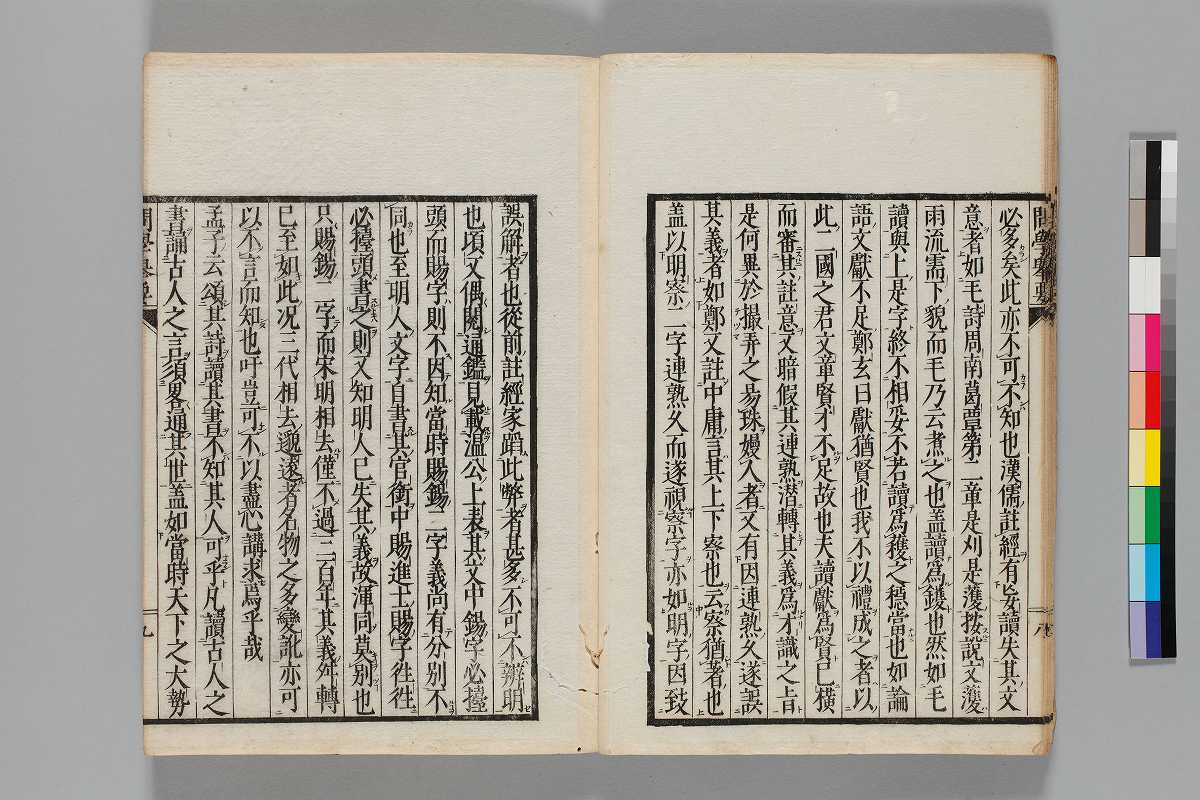 必多矣此亦不可不知也漢儒註經有妄讀失其文
意者如毛詩周南葛覃第二章是刈是濩按說文濩
雨流霤下貌而毛乃云煮之也盖讀爲鑊也然如毛
讀與上是字終不相妥不若讀爲穫之穩當也如論
語文獻不足鄭玄曰獻猶賢也我不以禮成之者以
此二國之君文章賢才不足故也夫讀獻爲賢已橫
而審其註意又暗假其連熟潜轉其義爲才識之旨
是何異於撮弄之易珠嫚人者又有因連熟久遂誤
其義者如鄭又註中庸言其上下察也云察猶著也
盖以明察二字連熟久而遂視察字亦如明字因致
誤解者也從前註經家蹈此弊者甚多不可不辨明
也頃又偶閱通鑑見載溫公上表其文中錫字必擡
頭而賜字則不因知當時賜錫二字義尚有分別不
同也至明人文字自書其官銜中賜進士賜字徃徃
必擡頭書之則又知明人已失其義故渾同莫別也
只賜錫二字而宋明相去僅不過三百年其義舛轉
已至如此况三代相去邈遠者名物之多變訛亦可
以不言而知也吁豈可不以盡心講求焉乎哉
孟子云頌其詩讀其書不知其人可乎凡讀古人之
書誦古人之言須畧通其世盖如當時天下之大勢
問學擧要
九